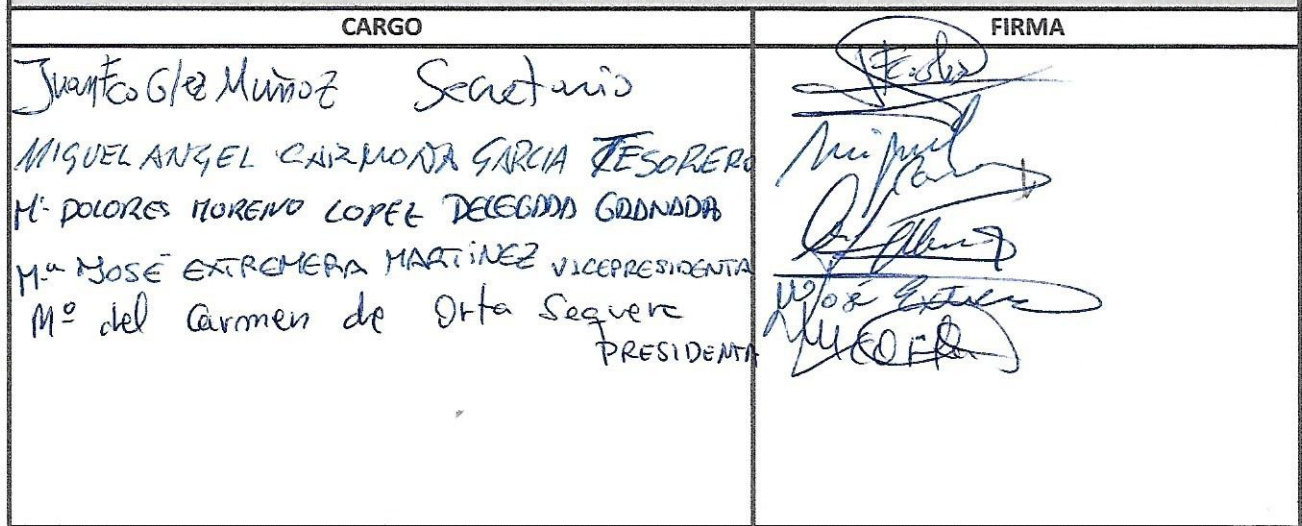 CARGO FIRMA
Juan Fco Glez Muñoz Secretario
MIGUEL ANGEL CARMONA GARCIA TESORERO
Mª DOLORES MORENO LOPEZ DELEGADA GRANADA
Mª JOSÉ EXTREMERA MARTÍNEZ VICEPRESIDENTA
Mª del Carmen de Orta Sequera
PRESIDENTA